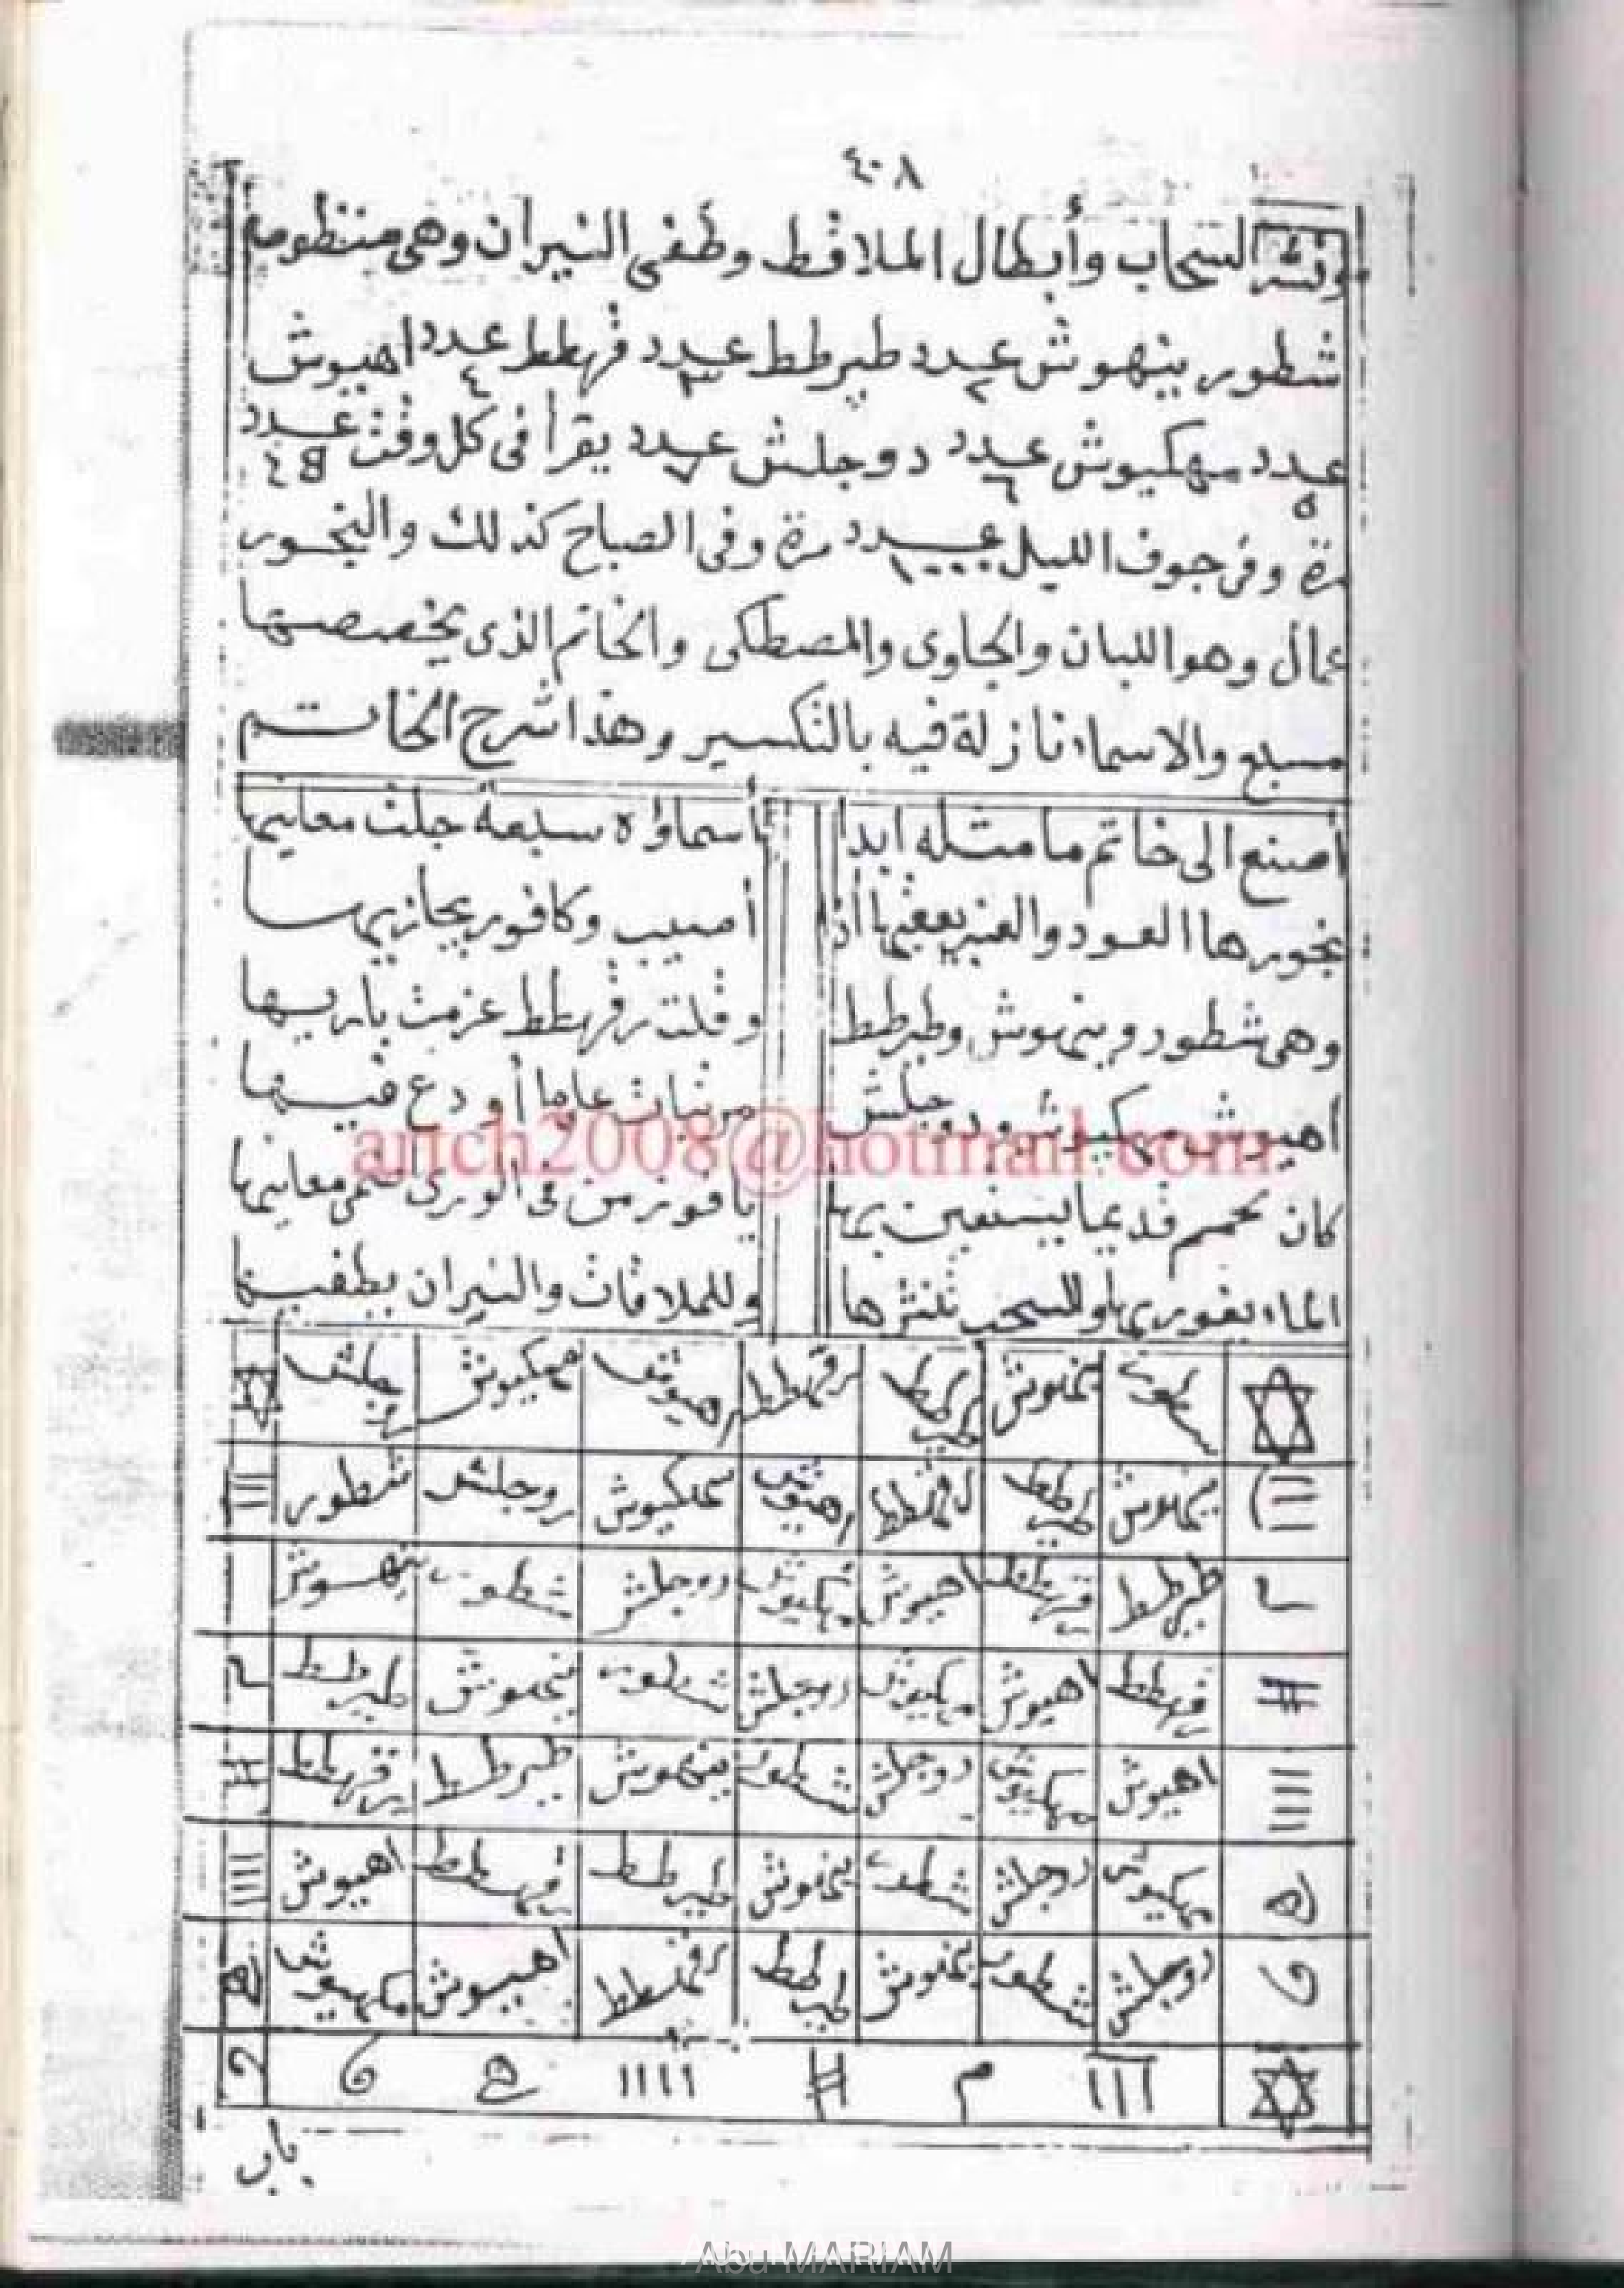 ٤٠٨
ونثر السحاب وأبطال الملاقط وطفى النيران وهى منظومه
شطور ينهوش عدد ٢ طيرطط عدد ٣ قهطط عدد ٤ اهيوش
عدد ٥ مهكيوش عدد ٦ دوجلش عدد ٧ يقرأ فى كل وقت عدد ٤٥
مرة وفى جوف الليل عدد ١٠٠٠ مرة وفى الصباح كذلك والبخور
عمال وهو اللبان والجاوى والمصطكى والخاتم الذى يخصصها
مسبع والاسماء نازلة فيه بالتكسير وهذا شرح الخاتم
أصنع الى خاتم ما مثله ابدا أسماؤه سبعة جلت معانيها
بخورها العود والعنبر أصيب وكافور يجازيها
وهى شطور وينهوش وطيرطط وقلت قهطط عزمت باريها
اهيوش مهكيوش ودوجلش مرتبات أودع فيها
كان قديما يستعين بها يا فوز من فى الورى معانيها
الماء يغور بها وللسحب تنثرها وللملاقات والنيران يطفيها
شطور ينهوش طيرطط قهطط اهيوش مهكيوش دوجلش
ينهوش طيرطط قهطط اهيوش مهكيوش دوجلش شطور
طيرطط قهطط اهيوش مهكيوش دوجلش شطور ينهوش
قهطط اهيوش مهكيوش دوجلش شطور ينهوش طيرطط
اهيوش مهكيوش دوجلش شطور ينهوش طيرطط قهطط
مهكيوش دوجلش شطور ينهوش طيرطط قهطط اهيوش
دوجلش شطور ينهوش طيرطط قهطط اهيوش مهكيوش
باب
artch2008@hotmail.com
Abu MARIAM